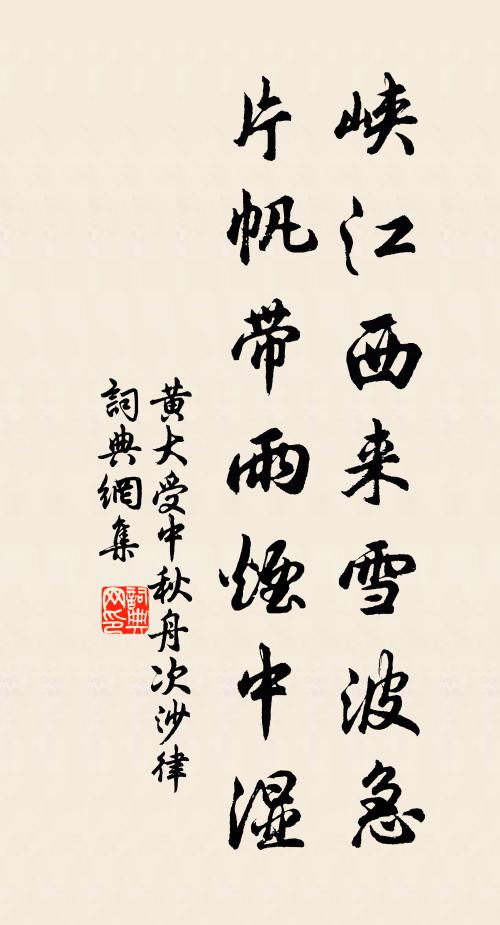 峡江西来雪波急
片帆带雨煙中湿
黄大受中秋舟次沙律
詞典網集
詞典
网印